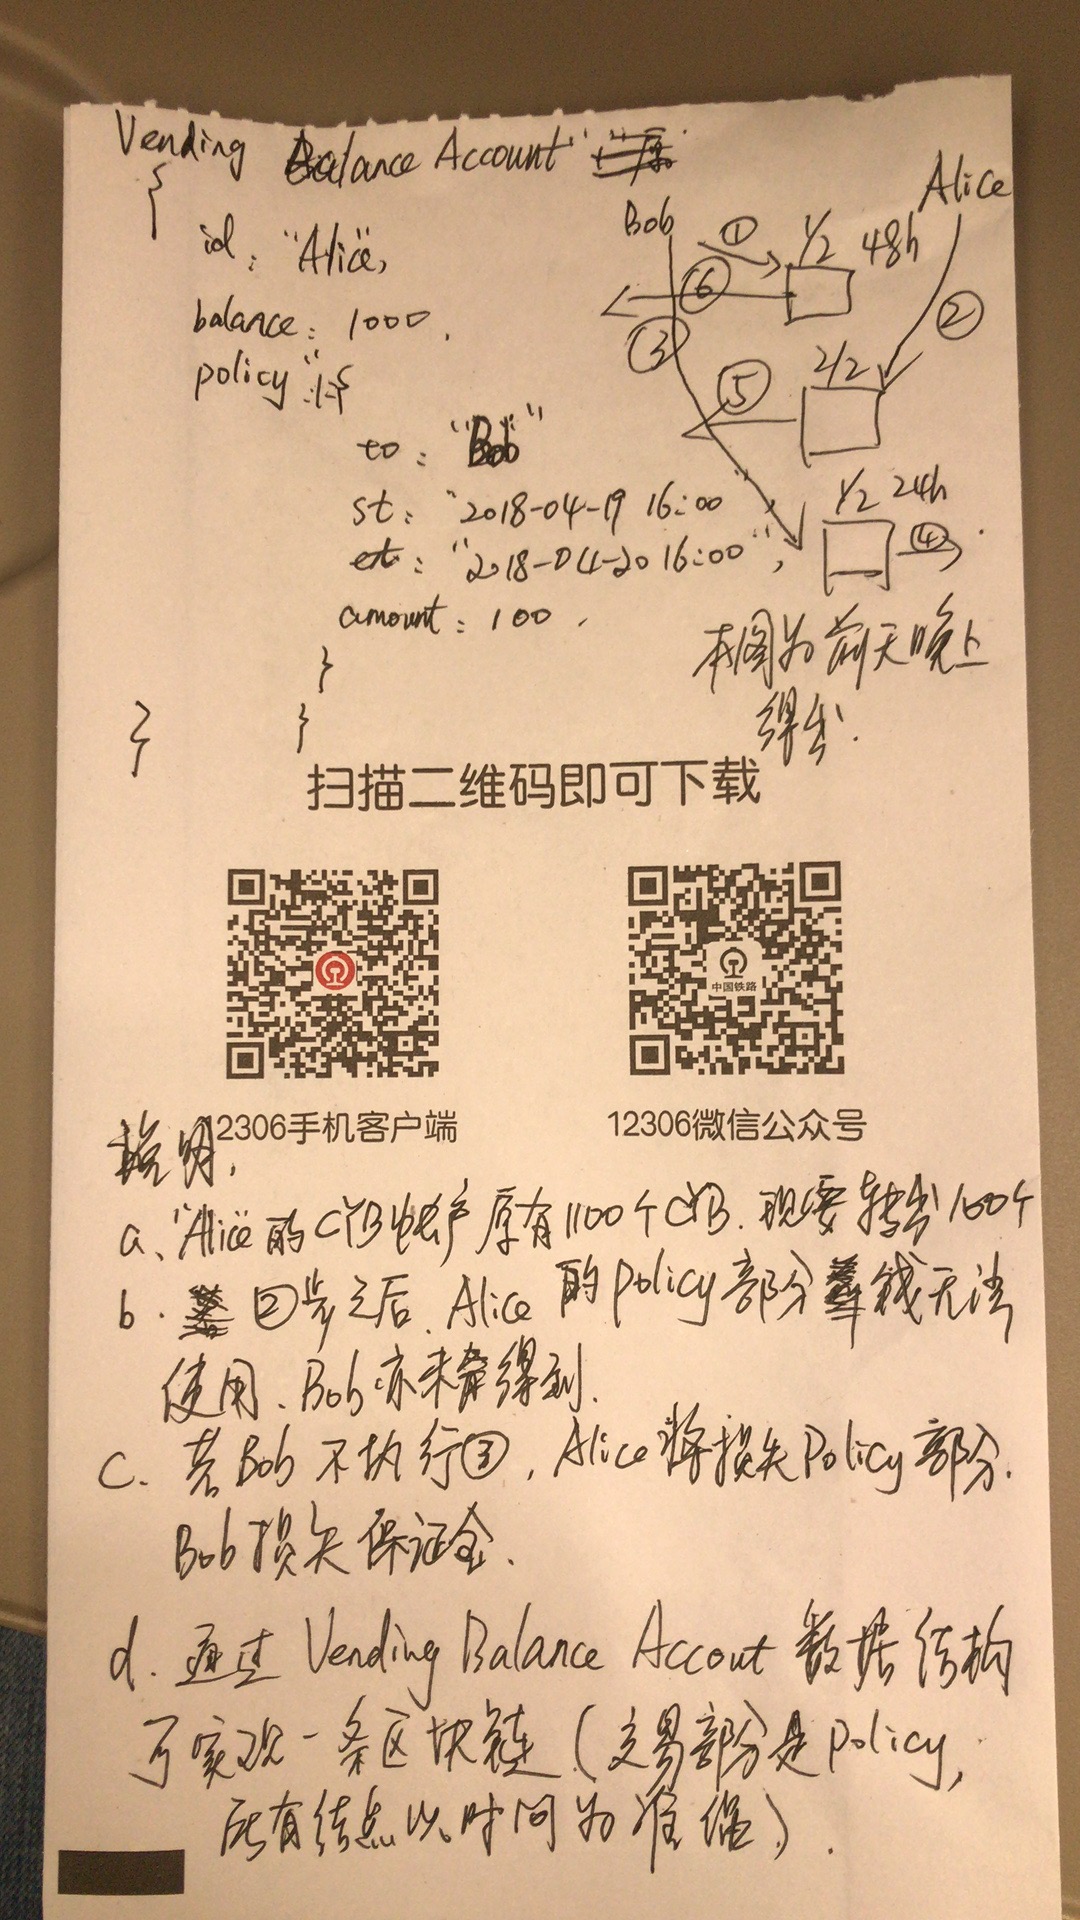 Vending Balance Account
{
id: "Alice",
balance: 1000,
policy: {
to: "Bob"
st: "2018-04-19 16:00"
et: "2018-04-20 16:00",
amount: 100,
}
}
}
Bob
Alice
①
1/2 48h
⑥
②
③
2/2
⑤
1/2 24h
④
本图为前天晚上
得出.
扫描二维码即可下载
中国铁路
12306手机客户端
12306微信公众号
说明,
a、"Alice"的CYB帐户原有1100个CYB.现要转出100个
b. ②步之后、Alice的policy部分钱无法
使用、Bob亦未得到.
c. 若Bob不执行③, Alice将损失Policy部分.
Bob损失保证金.
d. 通过Vending Balance Accout数据结构
可实现一条区块链(交易部分是policy,
所有结点以时间为准绳).